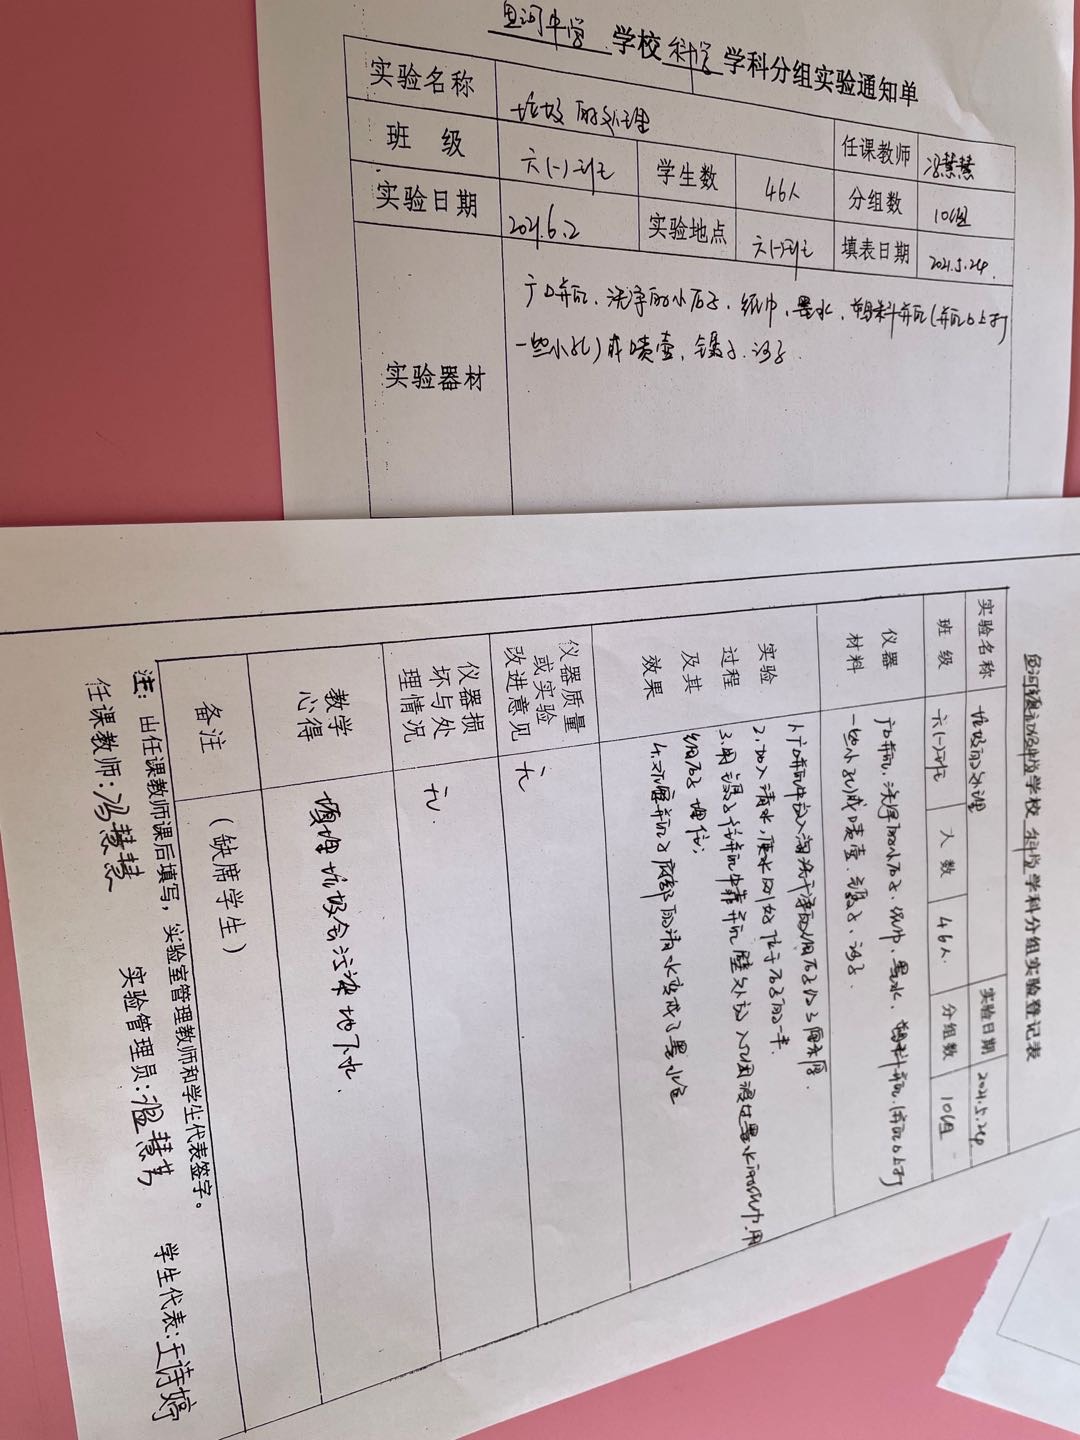 鱼河中学 学校 科学 学科分组实验通知单
实验名称 垃圾的处理 任课教师 冯慧慧
班 级 六(一)班 学生数 46人 分组数 10组
实验日期 2021.6.2 实验地点 六(一)班 填表日期 2021.5.24.
实验器材 广口瓶、洗净的小石子、纸巾、墨水、塑料瓶(瓶口上打
一些小孔)或喷壶、镊子、
学校 科学 学科分组实验登记表
实验名称 垃圾的处理 实验日期 2021.5.24
班 级 六(一)班 人 数 46人. 分组数 10组
仪器 广口瓶、洗净的小石子、纸巾、墨水、塑料瓶(瓶口上打
材料 一些小孔)或喷壶、镊子、
实验 1.广口瓶中放入淘洗干净的细石子约3厘米厚.
过程 2.加入清水,使水刚好位于石子的一半.
及其 3.用镊子在瓶中靠瓶壁处放入几团浸过墨水的纸巾,用
效果 细石子埋住;
4.观察 底部的清水变成了墨水色
仪器质量
或实验
改进意见 无
仪器损
坏与处
理情况 无.
教学
心得 填埋垃圾会污染地下水.
备注 (缺席学生)
注:由任课教师课后填写,实验室管理教师和学生代表签字。
任课教师:冯慧慧 实验管理员:温慧芳 学生代表:王诗婷